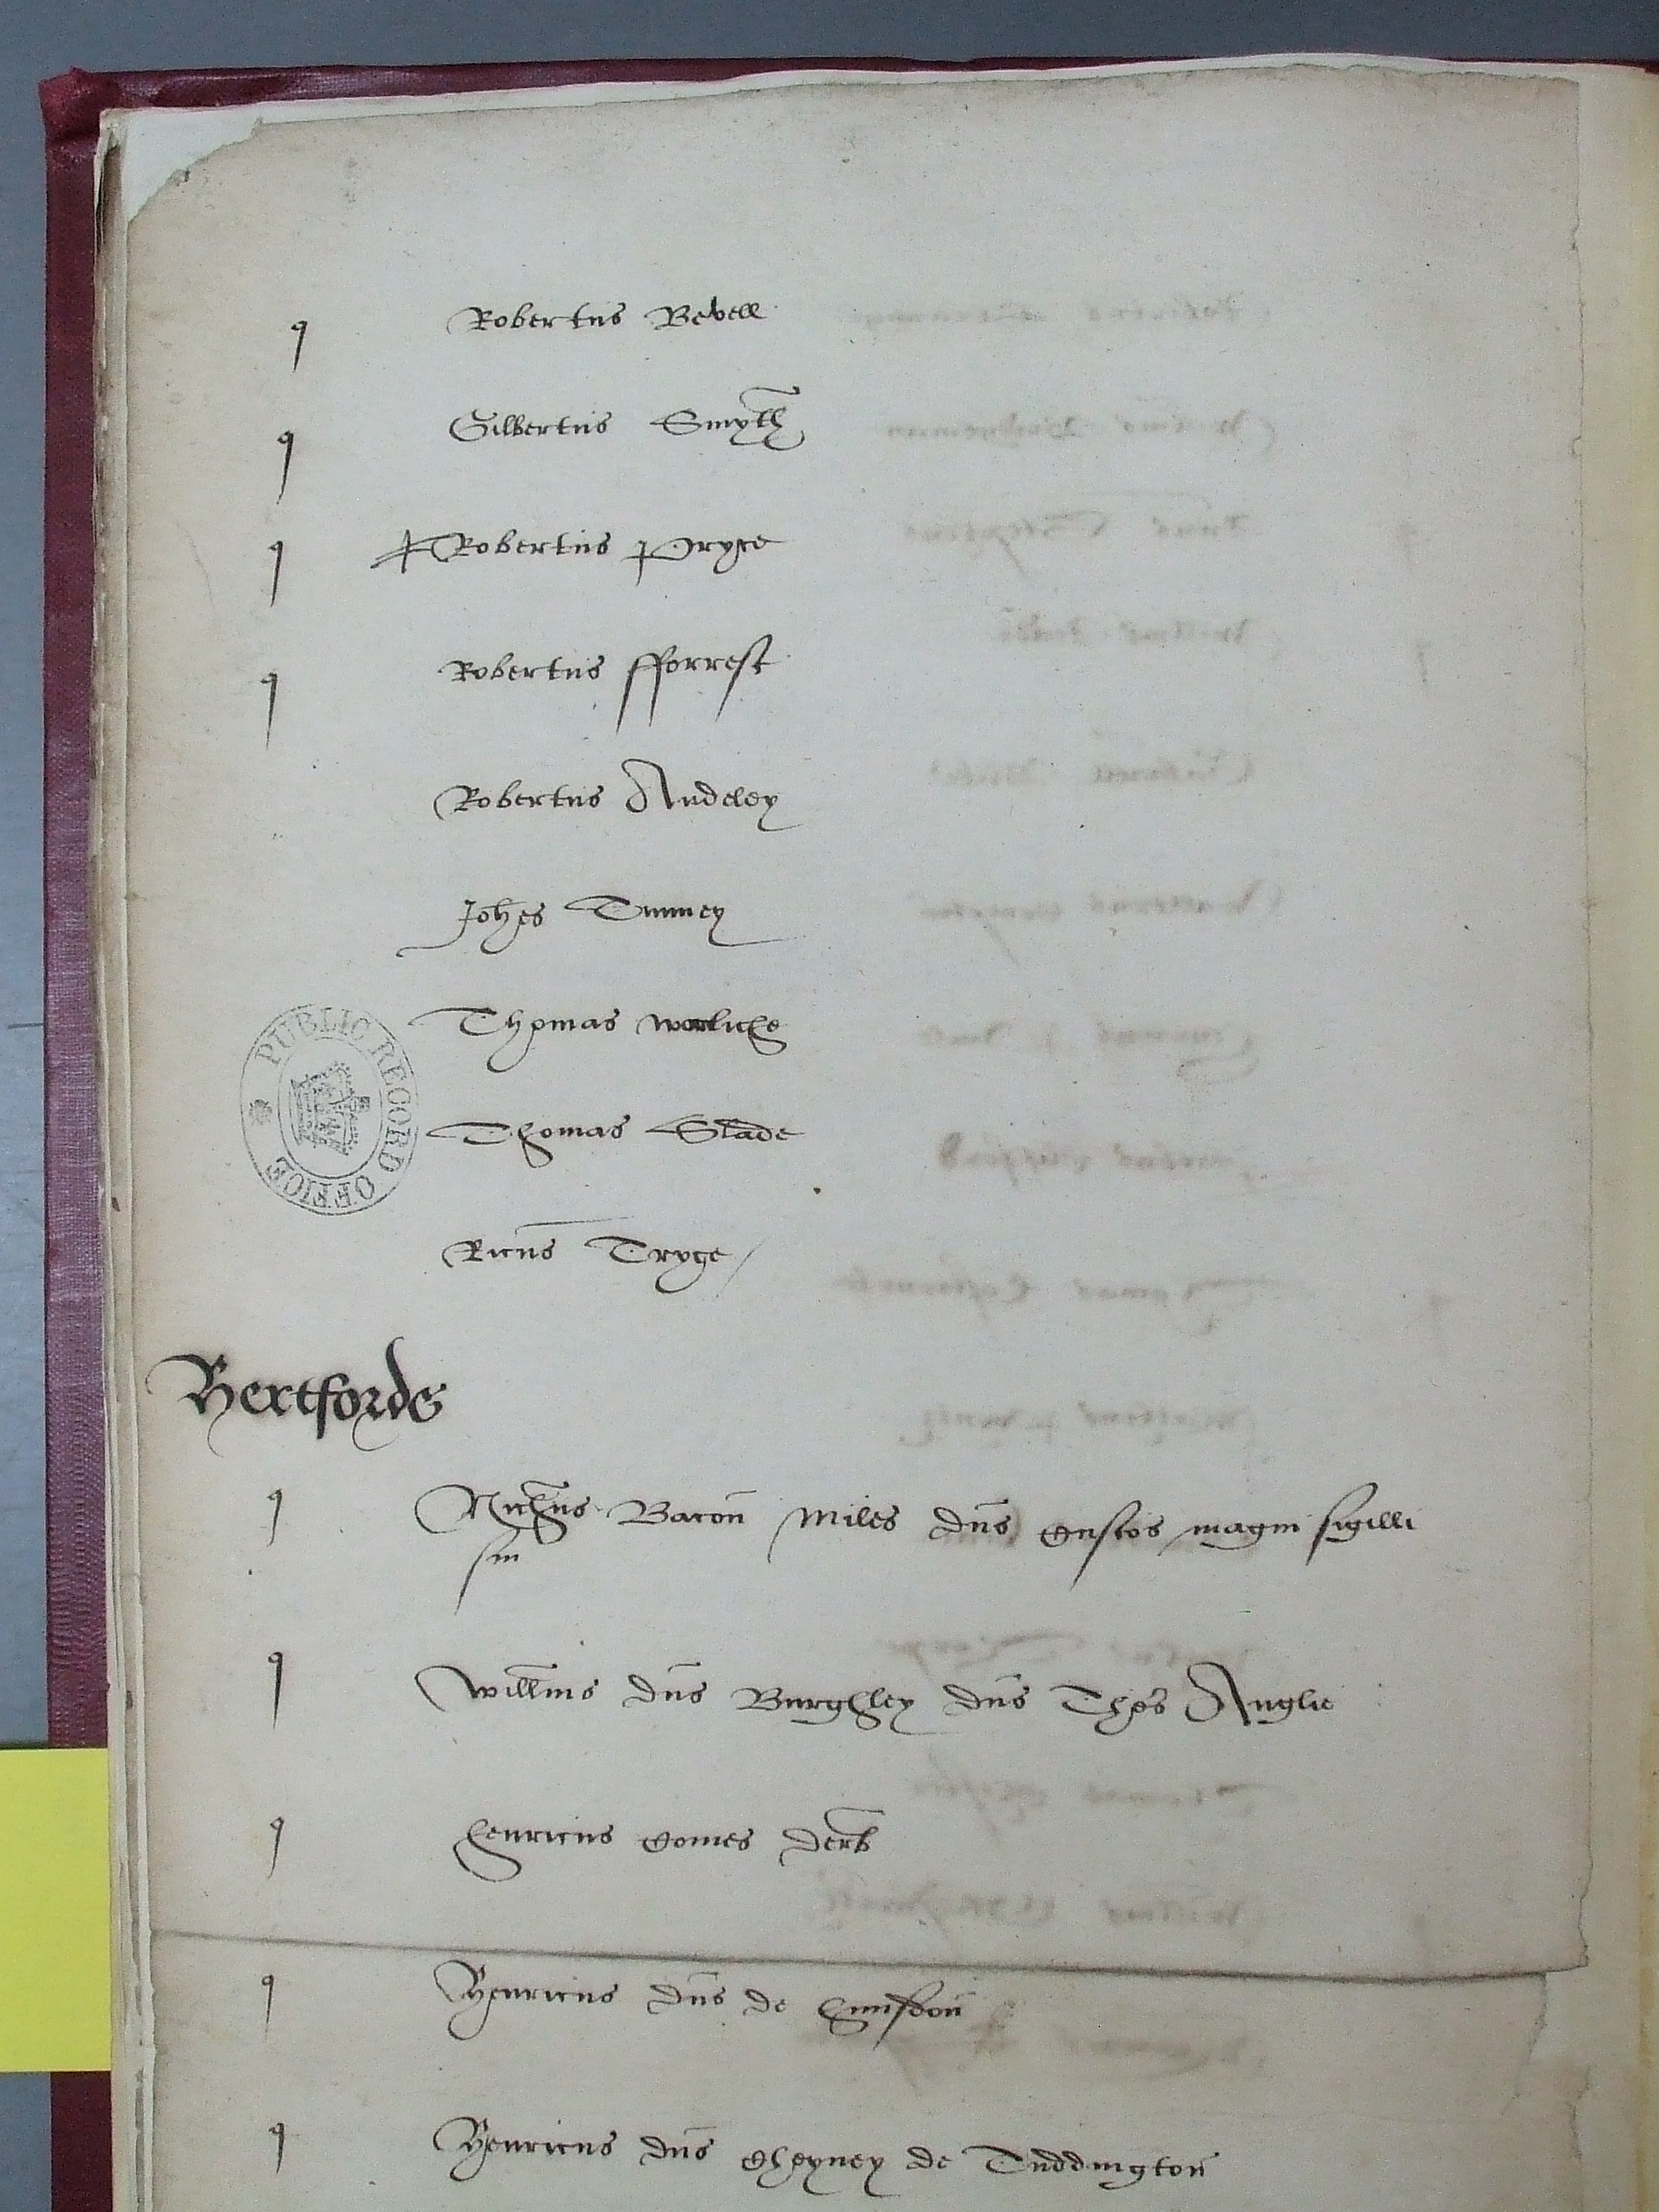 q Robertus Bevell
q Gilbertus Smyth
q Robertus Pryce
q Robertus fforrest
Robertus Audeley
Johes Turney
Thomas worliche
Thomas Slade
Ricus Tryge
PUBLIC RECORD OFFICE
Hertfords
q Nichus Bacon Miles dns custos magni sigilli
sui
q willms dns Burghley dns Thes Anglie
q henricus comes derb
q Henricus dns de hunsdon
q Henricus dns cheyney de Tuddington